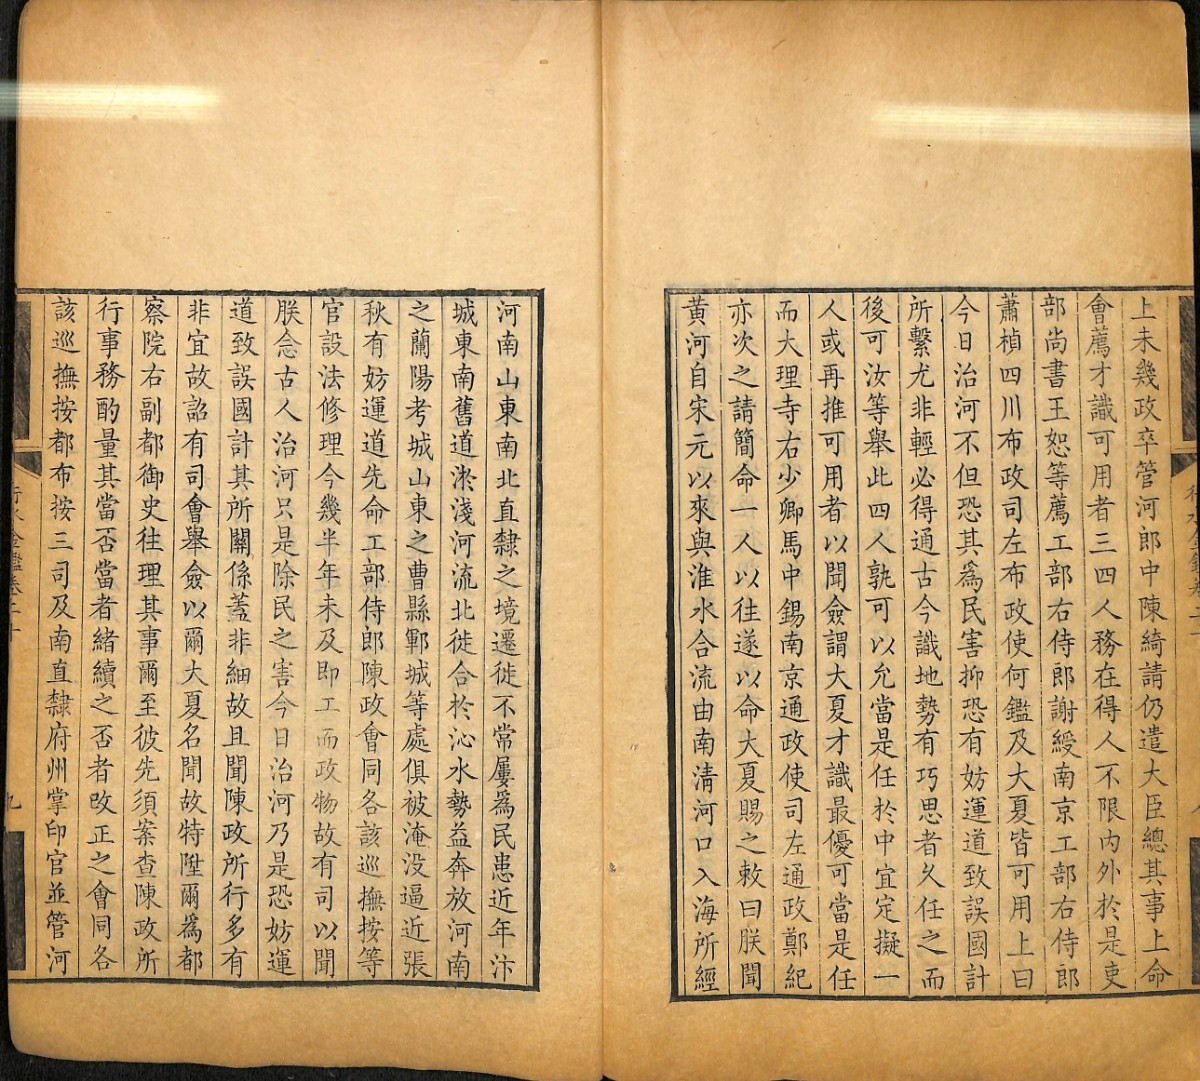 上未幾政卒管河郎中陳綺請仍遣大臣總其事上命
會薦才識可用者三四人務在得人不限內外於是吏
部尚書王恕等薦工部右侍郎謝綬南京工部右侍郎
蕭楨四川布政司左布政使何鑑及大夏皆可用上曰
今日治河不但恐其為民害抑恐有妨運道致誤國計
所繫尤非輕必得通古今識地勢有巧思者久任之而
後可汝等舉此四人孰可以允當是任於中宜定擬一
人或再推可用者以聞僉謂大夏才識最優可當是任
而大理寺右少卿馬中錫南京通政使司左通政鄭紀
亦次之請簡命一人以往遂以命大夏賜之敕曰朕聞
黃河自宋元以來與淮水合流由南清河口入海所經
河南山東南北直隸之境遷徙不常屢為民患近年汴
城東南舊道淤淺河流北徙合於沁水勢益奔放河南
之蘭陽考城山東之曹縣鄆城等處俱被淹没逼近張
秋有妨運道先命工部侍郎陳政會同各該巡撫按等
官設法修理今幾半年未及即工而政物故有司以聞
朕念古人治河只是除民之害今日治河乃是恐妨運
道致誤國計其所關係蓋非細故且聞陳政所行多有
非宜故詔有司會舉僉以爾大夏名聞故特陞爾為都
察院右副都御史往理其事爾至彼先須案查陳政所
行事務酌量其當否當者緒續之否者改正之會同各
該巡撫按都布按三司及南直隸府州掌印官並管河
行水金鑑卷二十
九